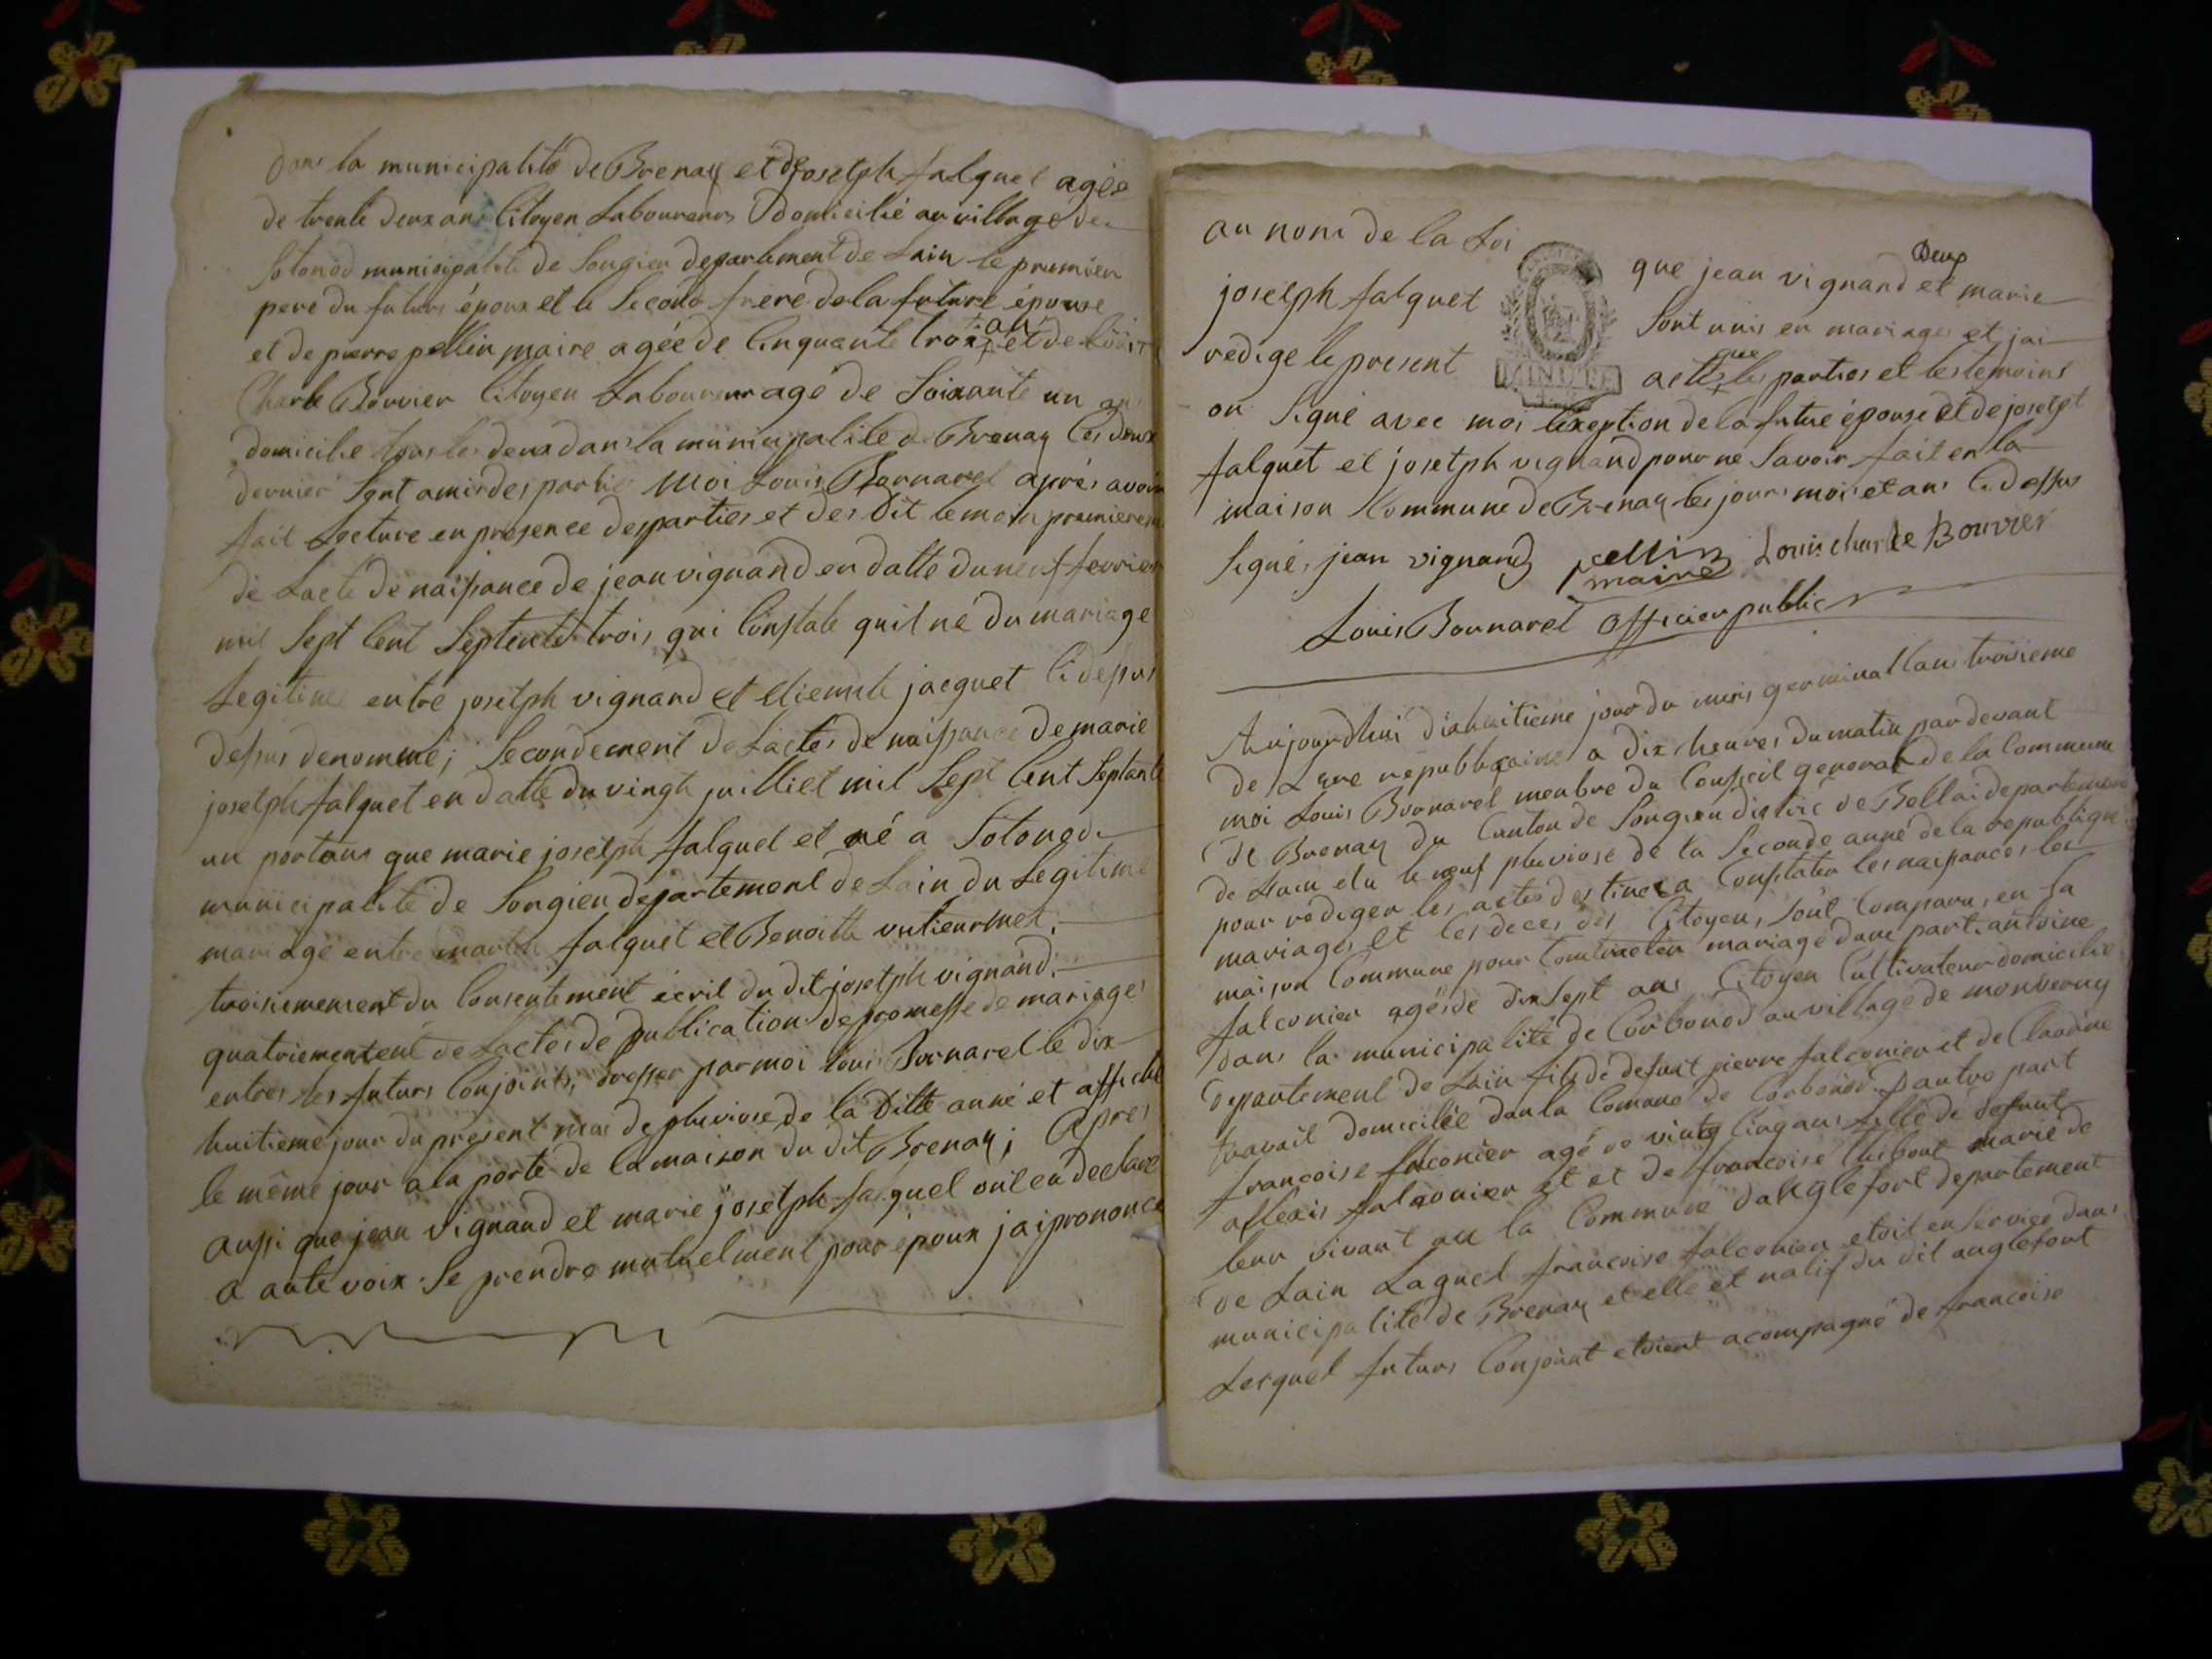 Dans la municipalité de Brenay et de Joselph falquet agée
de trente deux ans Citoyen Laboureurs domicilié au village de
Sotonod municipalité de Songieu departement de Lain le premier
pere du futurs époux et le Second frere de la future épouse
et de pierre pellin maire agée de Cinquante trois ans et de Louis
Charle Bouvier Citoyen Laboureur agé de Soixante un an
domicilie tous les deux dans la municipalite de Brenay les deux
dernier Sont amis des partie moi Louis Bornarel aprés avoir
fait Lecture en presence des parties et des dit temoin premierem
de Lacte de naissance de jean vignand en datte du neuf fevrier
mil Sept Cent Septente trois, qui Constate quil né du mariage
Legitime entre joselph vignand et etiennete jacquet Ci desus
desus denommé; Secondement de Lactes de naissance de marie
joselph falquet en datte du vingt juilliet mil Sept Cent Septante
un portans que marie joselph falquet et né a Sotonod
municipalité de Songieu departement de Lain du Legitime
mariage entre martin falquet et Benoitte
troisiemement du Consentement écrit du dit joselph vignand.
quatriemement de Lactes de publication de promesse de mariages
entres les futurs Conjoints, dresser par moi Louis Bornarel le dix
huitieme jour du present mois de pluviose de la ditte anné et affiche
le même jour a la porte de la maison du dit Brenay; Apres
aussi que jean vignand et marie joselph falquet ont en declaré
a aute voix Se prendre mutuelment pour époux jai prononcé
au nom de la Loi que jean vignand et marie Deux
joselph falquet Sont unis en mariages et jai
redige le present MINUTE acte que les parties et les temoins
on Signé avec moi lexeption de la future épouse et de joselpt
falquet et joselph vignand pour ne Savoir fait en la
maison Commune de Brenay les jours mois et ans Ci dessus
Signé, jean vignand pellin maire Louis charle Bouvier
Louis Bournarel Officier public
Aujourdhui dixhuitieme jour du mois germinal lans troisieme
de Lere republicaine a dix heures du matin par devant
moi Louis Bournarel menbre du Conseil general de la Commune
de Brenay du Canton de Songieu distric de Bellai departement
de Lain elu le neuf pluviose de la Seconde anné de la republique
pour rediger les actes destinés a Constater les naissances les
mariages et les deces des Citoyens, Sont Comparu en la
maison Commune pour Contracter mariage dune part antoine
falconier agés de dix Sept ans Citoyen Cultivateur domicilié
dans la municipalité de Corbonod au village de monverny
Departement de Lain fils de defunt pierre falconier et de Claodine
travail domicilée dans la Comune de Corbonod Dautre part
francoise falconier agé de vingt Cinq ans fille de defunt
allexis falconier et et de francoise marié de
leur vivant au la Commune danglefort departement
de Lain Laquel francoise falconier etoit en Service dans
municipalité de Brenay et elle et natif du dit anglefort
Lesquel futurs Conjoint etoient acompagné de francoise